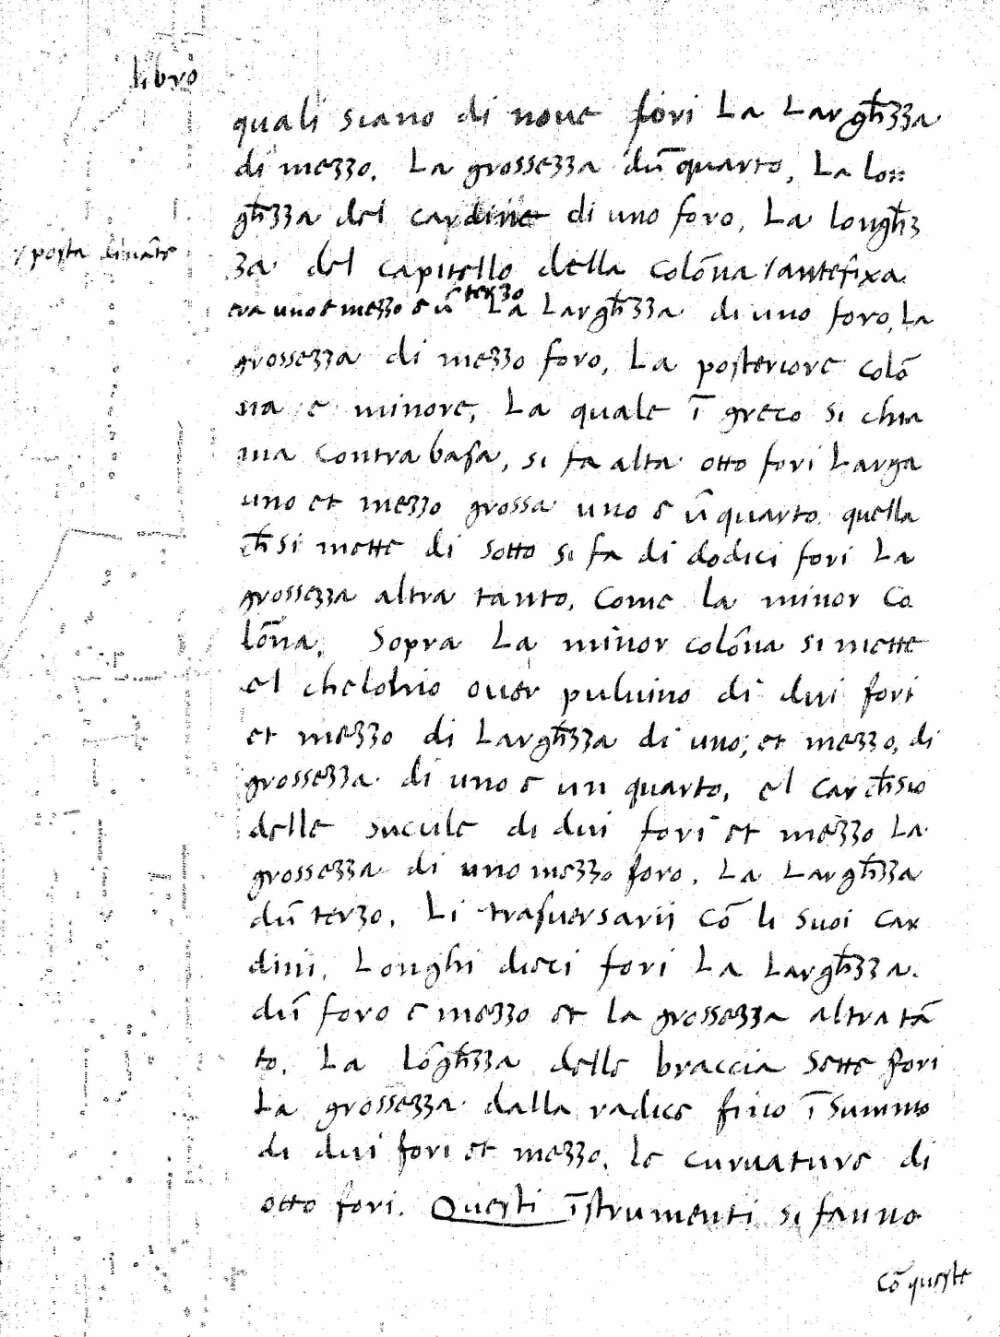 libro
quali siano di noue fori La Largh̄zza
di mezzo. La grossezza dū quarto, La lon=
gh̄zza del cardine di uno foro, La longh̄z
posta dināte
za del capitello della colōna / antefixa
terzo
era uno e mezzo e ū La Largh̄zza di uno foro, La
grossezza di mezzo foro, La posteriore colō
na e minore, La quale ī greco si chia
ma contrabasa, si fa alta otto fori Larga
uno et mezzo grossa uno e ū quarto quella
ch̄ si mette di sotto si fa di dodici fori La
grossezza altra tanto, come la minor co
lōna. Sopra La minor colōna si mette
el chelohio ouer puluino di dui fori
et mezzo di Largh̄zza di uno, et mezzo, di
grossezza di uno e un quarto, el carch̄sio
delle sucule di dui fori et mezzo La
grossezza di uno mezzo foro. La Largh̄zza
dū terzo. Li trasuersarij cō li suoi car
dini. Longhi dieci fori La Largh̄zza.
dū foro e mezzo et la grossezza altra tā
to. La lōgh̄zza delle braccia sette fori
La grossezza dalla radice fino ī summo
di dui fori et mezzo, le curuature di
otto fori. Questi īstrumenti si fanno
cō queste